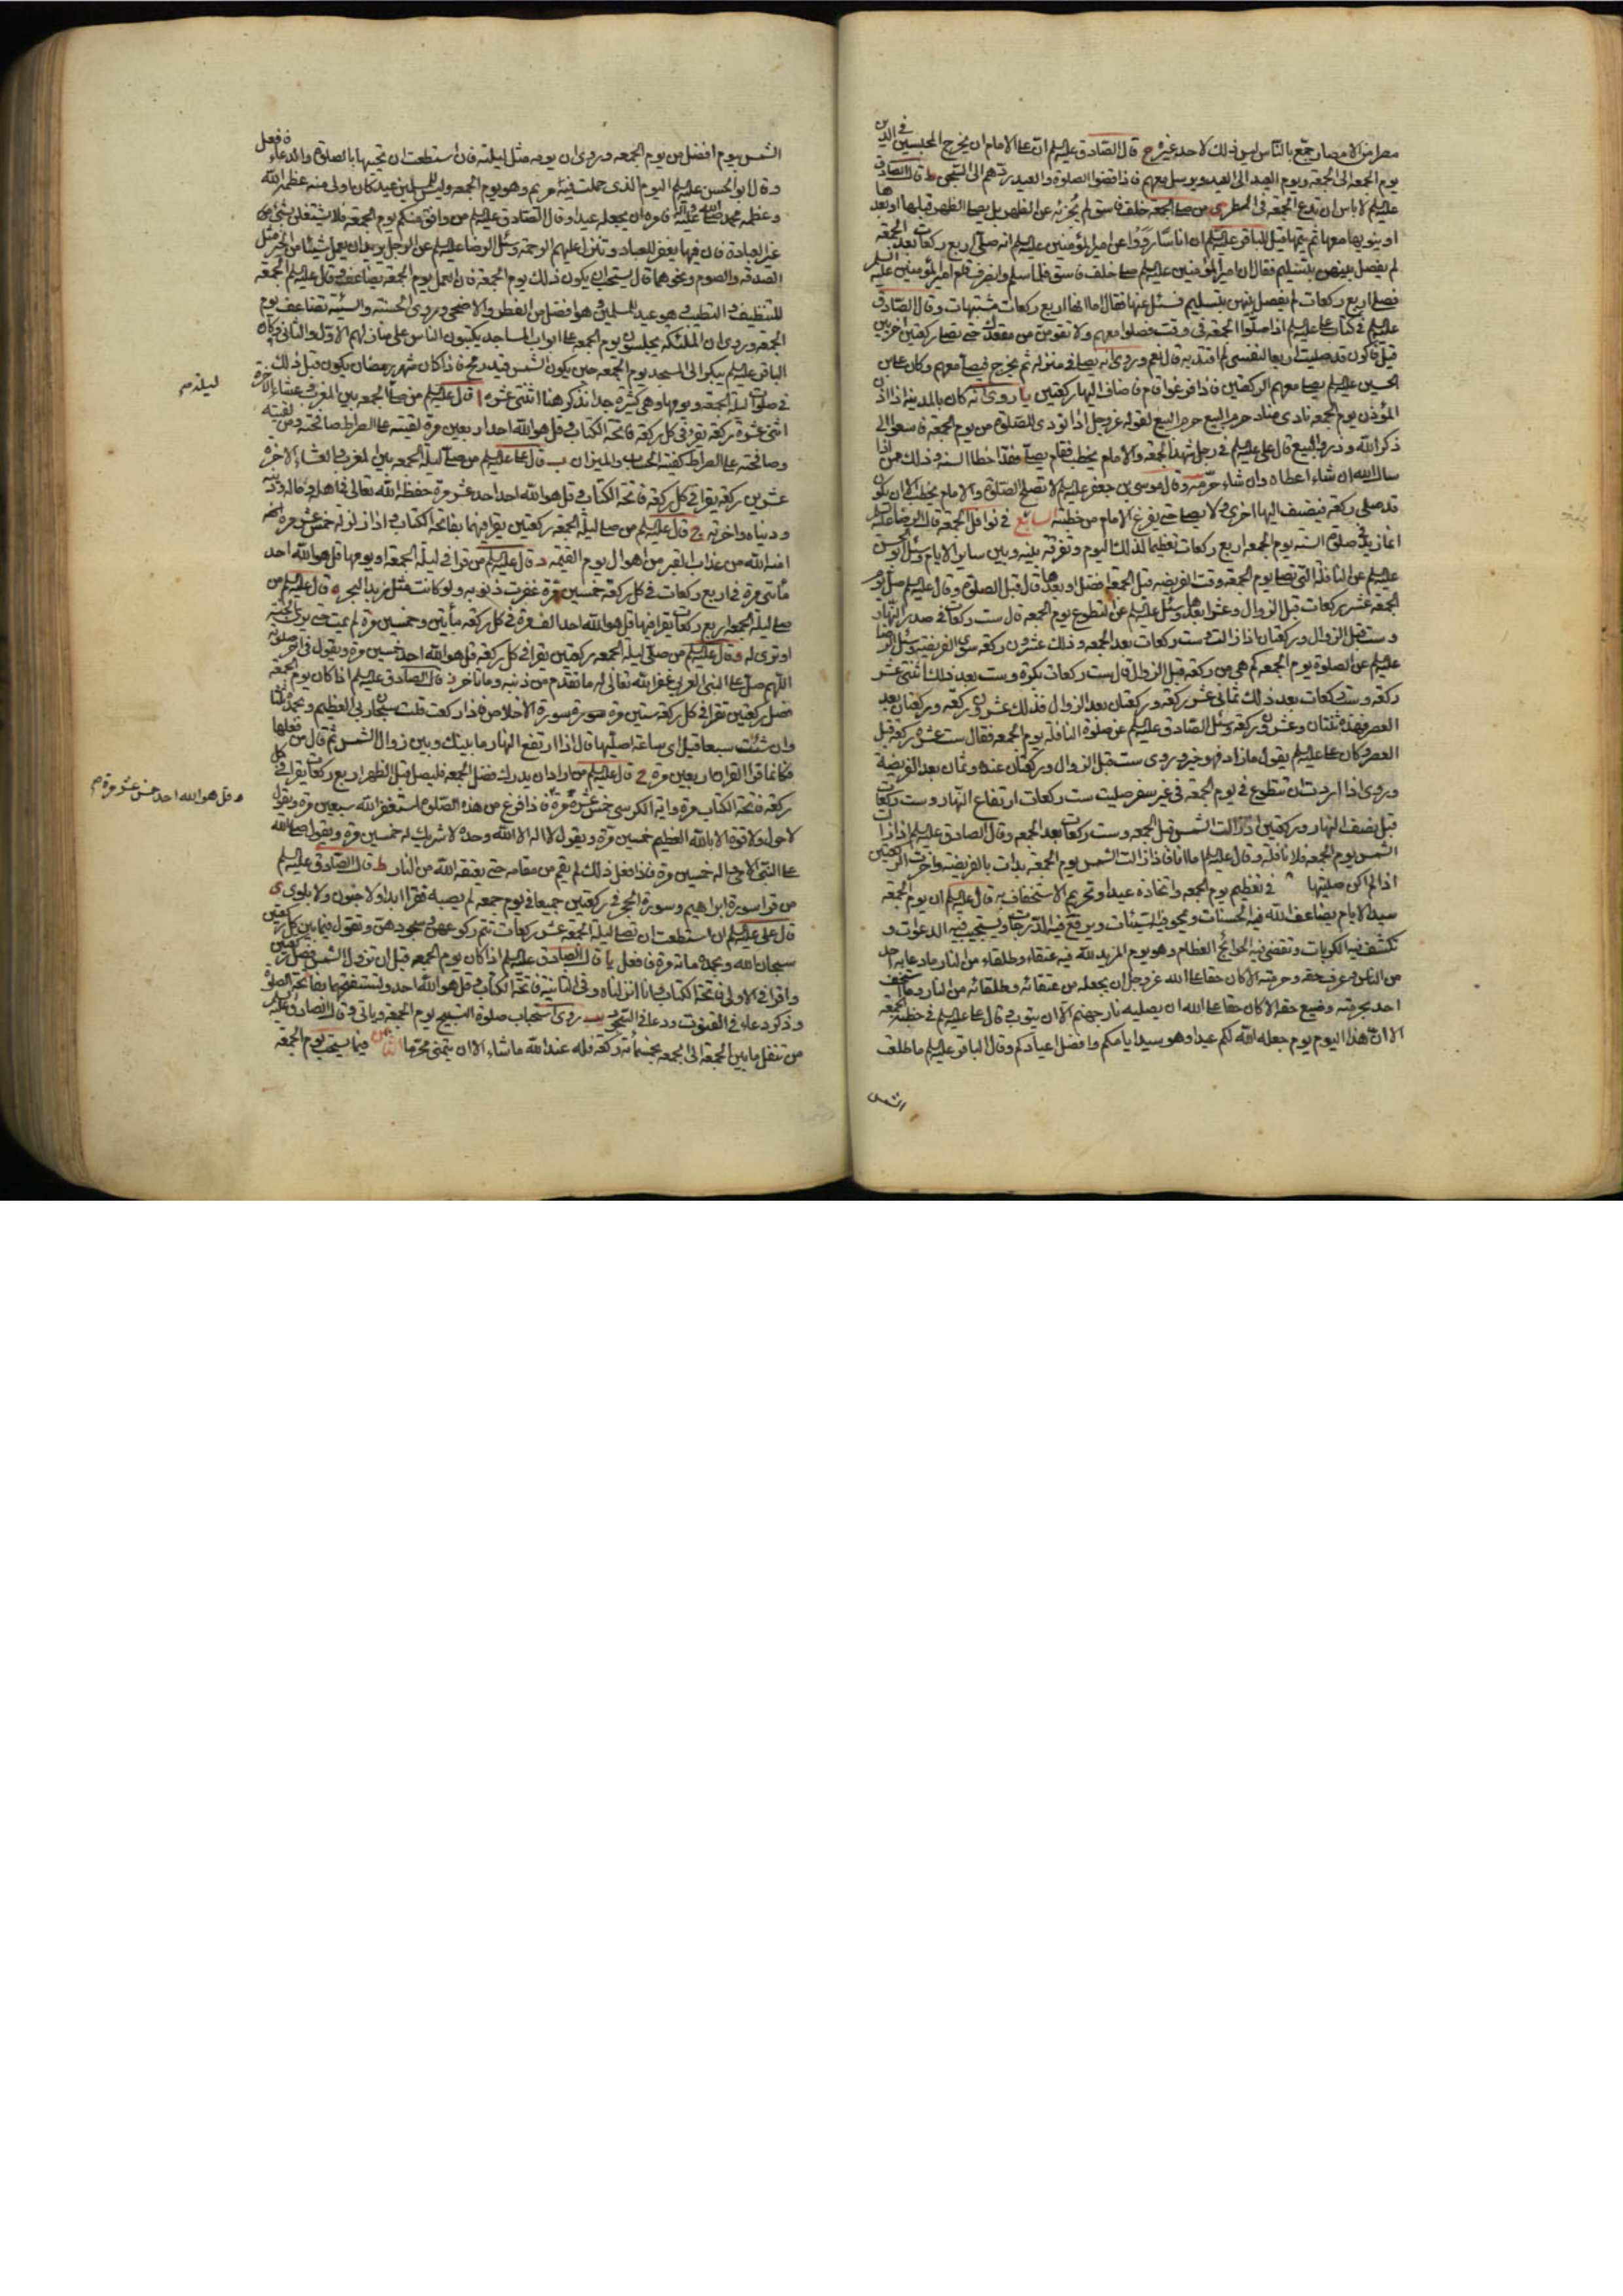 مصرا من الامصار جمع بالناس ليس ذلك لاحد غيره ح قال الصادق عليه السلم ان على الامام ان يخرج المحبسين في الدين
يوم الجمعة الى الجمعة ويوم العيد الى العيد ويرسل معهم فاذا قضوا الصلوة والعيد ردهم الى السجن ط قال الصادق
عليه السلم لا باس ان تدع الجمعة في المطر ى من صلى الجمعة خلف فاسق لم يجزئه عن الظهر بل يصلى الظهر قبلها او بعدها
او ينويها معها ثم يتمها قيل للباقر عليه السلم ان اناسا رووا عن امير المؤمنين عليه السلم انه صلى اربع ركعات بعد الجمعة
لم يفصل بينهن بتسليم فقال ان امير المؤمنين عليه السلم صلى خلف فاسق فلما سلم وانصرف قام امير المؤمنين عليه السلم
فصلى اربع ركعات لم يفصل بينهن بتسليم فسئل عنها فقال اما انها اربع ركعات مشتبهات وقال الصادق
عليه السلم في كتاب على عليه السلم اذا صلوا الجمعة في وقت فصلوا معهم ولا تقومن من مقعدك حتى تصلى ركعتين اخريين
قيل فاكون قد صليت اربعا لنفسى لم اقتد به قال نعم وروى انه يصلى في منزله ثم يخرج فيصلى معهم وكان على بن
الحسين عليه السلم يصلى معهم الركعتين فاذا فرغوا قام فاضاف اليها ركعتين يا روى انه كان بالمدينة اذا اذن
المؤذن يوم الجمعة نادى مناد حرم البيع حرم البيع لقوله عز وجل اذا نودى للصلوة من يوم الجمعة فاسعوا الى
ذكر الله وذروا البيع قال على عليه السلم في رجل شهد الجمعة والامام يخطب فقام يصلى فقد اخطا السنة وذلك ممن اذا
سال الله ان شاء اعطاه وان شاء حرمه وقال موسى بن جعفر عليه السلم لا تصلح الصلوة والامام يخطب الا ان يكون
قد صلى ركعة فيضيف اليها اخرى ولا يصلى حتى يفرغ الامام من خطبته السابع في نوافل الجمعة قال الرضا عليه السلم
انما زيد في صلوة السنة يوم الجمعة اربع ركعات تعظيما لذلك اليوم وتفرقة بينه وبين ساير الايام وسئل ابو الحسن
عليه السلم عن النافلة التى تصلى يوم الجمعة وقت الفريضة قبل الجمعة افضل او بعدها قال قبل الصلوة وقال عليه السلم صل يوم
الجمعة عشر ركعات قبل الزوال وعشرا بعدها وسئل عليه السلم عن التطوع يوم الجمعة قال ست ركعات في صدر النهار
وست قبل الزوال وركعتان اذا زالت وست ركعات بعد الجمعة وذلك عشرون ركعة سوى الفريضة وسئل الرضا
عليه السلم عن الصلوة يوم الجمعة كم هى من ركعة قبل الزوال قال ست ركعات بكرة وست بعد ذلك اثنتى عشر
ركعة وست ركعات بعد ذلك ثمانى عشر ركعة وركعتان بعد الزوال فذلك عشرون ركعة وركعتان بعد
العصر فهذه ثنتان وعشرون ركعة وسئل الصادق عليه السلم عن صلوة النافلة يوم الجمعة فقال ست عشرة ركعة قبل
العصر وكان على عليه السلم يقول ما زاد فهو خير وروى ست قبل الزوال وركعتان عنده وثمان بعد الفريضة
وروى اذا اردت ان تتطوع في يوم الجمعة في غير سفر صليت ست ركعات ارتفاع النهار وست ركعات
قبل نصف النهار وركعتين اذا زالت الشمس قبل الجمعة وست ركعات بعد الجمعة وقال الصادق عليه السلم اذا زالت
الشمس يوم الجمعة فلا نافلة وقال عليه السلم اما انا فاذا زالت الشمس يوم الجمعة بدات بالفريضة واخرت الركعتين
اذا لم اكن صليتها في تعظيم يوم الجمعة واتخاذه عيدا وتحريم الاستخفاف به قال عليه السلم ان يوم الجمعة
سيد الايام يضاعف الله فيه الحسنات ويمحو فيه السيئات ويرفع فيه الدرجات ويستجيب فيه الدعوات و
تكشف فيه الكربات وتقضى فيه الحوائج العظام وهو يوم المزيد لله فيه عتقاء وطلقاء من النار ما دعا به احد
من الناس وعرف حقه وحرمته الا كان حقا على الله عز وجل ان يجعله من عتقائه وطلقائه من النار وما استخف
احد بحرمته وضيع حقه الا كان حقا على الله ان يصليه نار جهنم الا ان يتوب قال على عليه السلم في خطبة الجمعة
الا ان هذا اليوم يوم جعله الله لكم عيدا وهو سيد ايامكم وافضل اعيادكم وقال الباقر عليه السلم ما طلعت
الشمس
الشمس بيوم افضل من يوم الجمعة وروى ان يومه مثل ليلته فان استطعت ان تحييها بالصلوة والدعاء فافعل
وقال ابو الحسن عليه السلم اليوم الذى حملت فيه مريم وهو يوم الجمعة وليس للمسلمين عيد كان اولى منه عظمه الله
وعظمه محمد صلى الله عليه وآله فامره ان يجعله عيدا وقال الصادق عليه السلم من وافق منكم يوم الجمعة فلا يشتغلن بشئ من
غير العبادة فان فيها يغفر للعباد وتنزل عليهم الرحمة وسئل الرضا عليه السلم عن الرجل يريد ان يعمل شيئا من الخير مثل
الصدقة والصوم ونحو هذا قال يستحب ان يكون ذلك يوم الجمعة فان العمل يوم الجمعة يضاعف وقال عليه السلم الجمعة
للتنظيف والتطيب وهو عيد للمسلمين وهو افضل من الفطر والاضحى وروى الحسنة والسيئة تضاعف يوم
الجمعة وروى ان الملئكة يجلسون يوم الجمعة على ابواب المساجد يكتبون الناس على منازلهم الاول والثانى وكان
الباقر عليه السلم يبكر الى المسجد يوم الجمعة حين يكون الشمس قيد رمح فاذا كان شهر رمضان يكون قبل ذلك
في صلوات ليلة الجمعة ويومها وهى كثيرة جدا نذكر هنا اثنتى عشرة ا قال عليه السلم من صلى الجمعة بين المغرب وعشاء الاخرة
ليلة م
اثنتى عشرة ركعة يقرء في كل ركعة فاتحة الكتاب وقل هو الله احد اربعين مرة لقيته على الصراط صافحته ومن لقيته
وصافحته على الصراط كفيته الحساب والميزان ب قال على عليه السلم من صلى ليلة الجمعة بين المغرب والعشاء الاخرة
عشرين ركعة يقرا في كل ركعة فاتحة الكتاب وقل هو الله احد احد عشر مرة حفظه الله تعالى في اهله وماله ودينه
ودنياه واخرته ج قال عليه السلم من صلى ليلة الجمعة ركعتين يقرا فيهما بفاتحة الكتاب واذا زلزلت خمس عشر مرة
امنه الله من عذاب القبر من اهوال يوم القيمة د قال عليه السلم من قرا في ليلة الجمعة او يومها قل هو الله احد
مأتى مرة في اربع ركعات في كل ركعة خمسين مرة غفرت ذنوبه ولو كانت مثل زبد البحر ه قال عليه السلم من
صلى ليلة الجمعة اربع ركعات يقرا فيها قل هو الله احد الف مرة في كل ركعة مأتين وخمسين مرة لم يمت حتى يرى الجنة
او ترى له و قال عليه السلم من صلى ليلة الجمعة ركعتين يقرا في كل ركعة قل هو الله احد خمسين مرة ويقول في اخر صلوته
اللهم صل على النبى العربى غفر الله تعالى له ما تقدم من ذنبه وما تاخر ز قال الصادق عليه السلم اذا كان يوم الجمعة
فصل ركعتين تقرا في كل ركعة ستين مرة سورة الاخلاص فاذا ركعت قلت سبحان ربى العظيم وبحمده ثلثا
وان شئت سبعا قيل اى ساعة اصليها قال اذا ارتفع النهار ما بينك وبين زوال الشمس ثم قال من فعلها
فكانما قرا القران اربعين مرة ح قال عليه السلم من اراد ان يدرك فضل الجمعة فليصل قبل الظهر اربع ركعات يقرا في كل
ركعة فاتحة الكتاب مرة واية الكرسى خمس عشرة مرة فاذا فرغ من هذه الصلوة استغفر الله سبعين مرة ويقول
وقل هو الله احد خمس عشر مرة م
لا حول ولا قوة الا بالله العظيم خمسين مرة ويقول لا اله الا الله وحده لا شريك له خمسين مرة ويقول صلى الله
على النبى الامى واله خمسين مرة فاذا فعل ذلك لم يقم من مقامه حتى يعتقه الله من النار ط قال الصادق عليه السلم
من قرا سورة ابراهيم وسورة الحجر في ركعتين جميعا في يوم جمعة لم يصبه فقر ابدا ولا جنون ولا بلوى ى
قال على عليه السلم ان استطعت ان تصلى ليلة الجمعة عشر ركعات تتم ركوعهن وسجودهن وتقول فيما بين كل ركعتين
سبحان الله وبحمده مائة مرة فافعل يا قال الصادق عليه السلم اذا كان يوم الجمعة قبل ان تزول الشمس فصل ركعتين
واقرا في الاولى فاتحة الكتاب وانا انزلناه وفي الثانية فاتحة الكتاب وقل هو الله احد وتستفتحهما بفاتحة الصلوة
وذكر دعاء في القنوت ودعا في السجود يب روى استحباب صلوة التسبيح يوم الجمعة وياتى وقال الصادق عليه السلم
من تنفل ما بين الجمعة الى الجمعة خمسمأئة ركعة فله عند الله ما شاء الا ان يتمنى محرما الثامن فيما يستحب يوم الجمعة